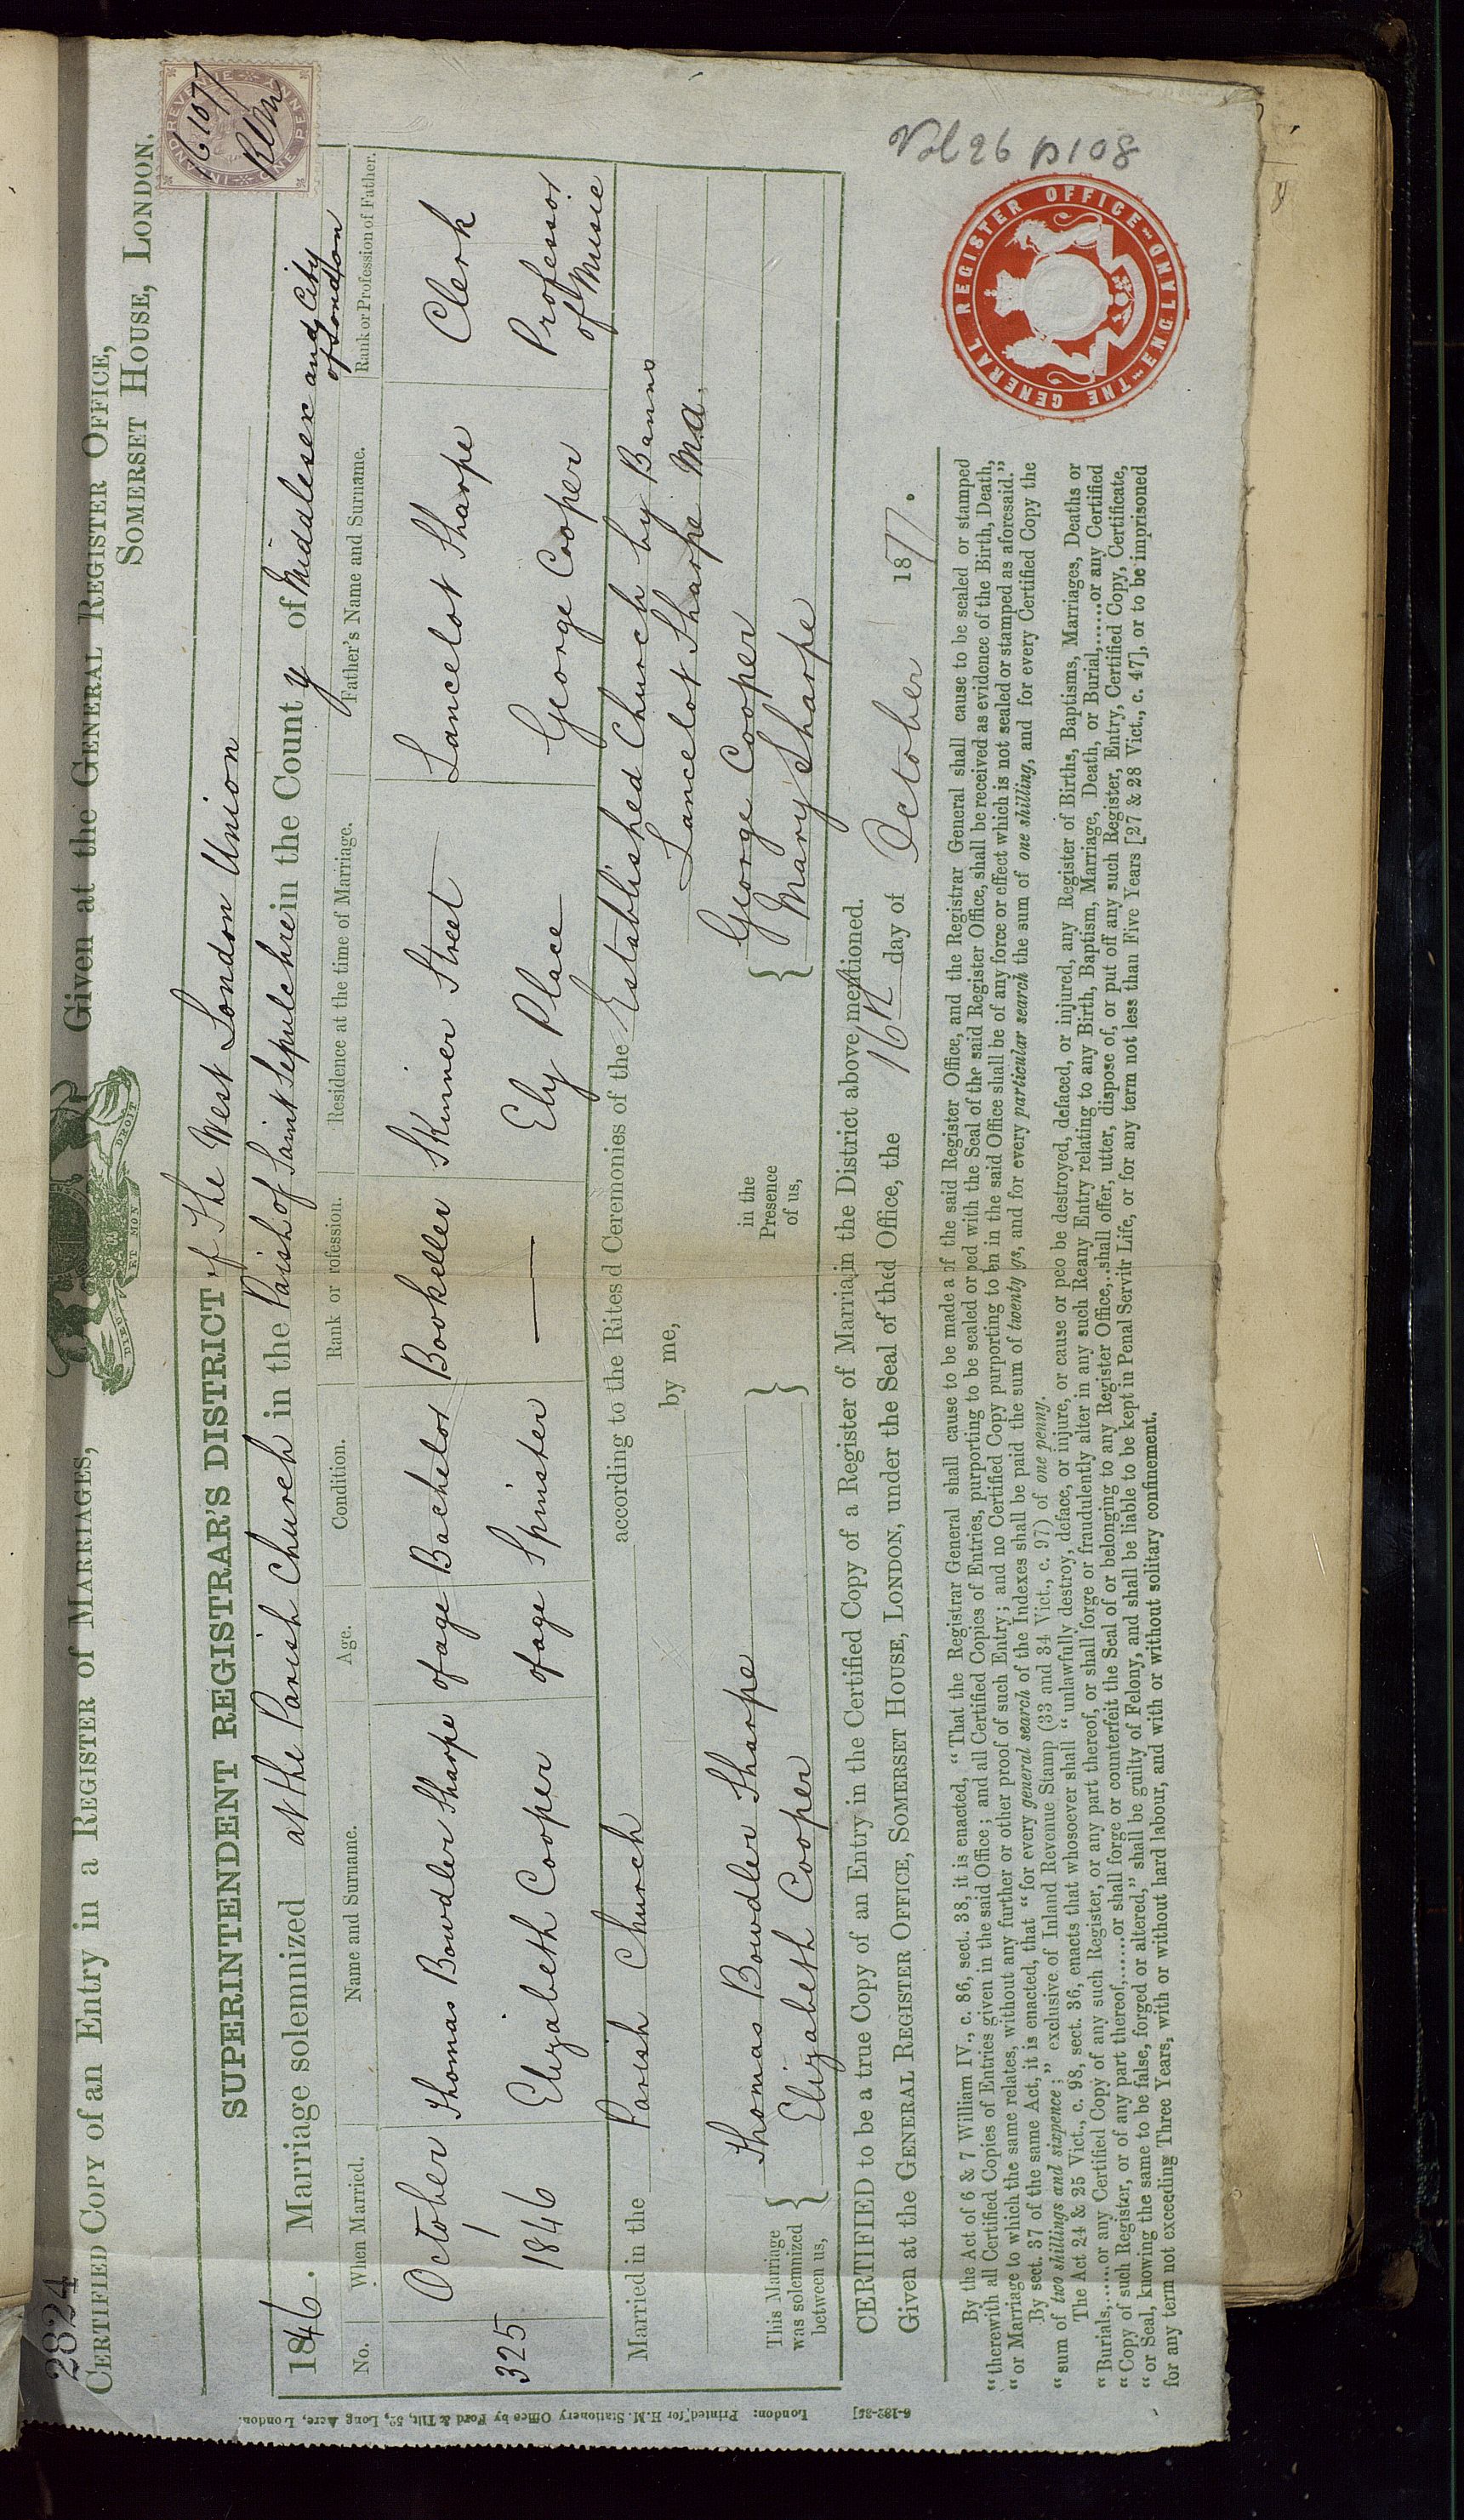 2824
CERTIFIED COPY of an Entry in a REGISTER of MARRIAGES,
DIEU ET MON DROIT
Given at the GENERAL REGISTER OFFICE,
SOMERSET HOUSE, LONDON.
INLAND REVENUE ONE PENNY
16 10 77
SUPERINTENDENT REGISTRAR'S DISTRICT of The West London Union
1846. Marriage solemnized at the Parish Church in the Parish of Saint Sepulchre in the County of Middlesex and City of London
No. When Married. Name and Surname. Age. Condition. Rank or rofession. Residence at the time of Marriage. Father's Name and Surname. Rank or Profession of Father.
325 October 1 1846 Thomas Bowdler Sharpe of age Bachelor Bookeller Skinner Street Lancelot Sharpe Clerk
Elizabeth Cooper of age Spinster — Ely Place George Cooper Professor of Music
Married in the Parish Church according to the Rites d Ceremonies of the Established Church by Banns
by me, Lancelot Sharpe M.A.
This Marriage was solemnized between us, { Thomas Bowdler Sharpe } in the Presence of us, { George Cooper
Elizabeth Cooper Mary Sharpe
CERTIFIED to be a true Copy of an Entry in the Certified Copy of a Register of Marria in the District above mentioned.
Given at the GENERAL REGISTER OFFICE, SOMERSET HOUSE, LONDON, under the Seal of the d Office, the 16th day of October 1877.
By the Act of 6 & 7 William IV., c. 86, sect. 38, it is enacted, "That the Registrar General shall cause to be made a f the said Register Office, and the Registrar General shall cause to be sealed or stamped
"therewith all Certified Copies of Entries given in the said Office; and all Certified Copies of Entries, purporting to be sealed or ped with the Seal of the said Register Office, shall be received as evidence of the Birth, Death,
"or Marriage to which the same relates, without any further or other proof of such Entry; and no Certified Copy purporting to en in the said Office shall be of any force or effect which is not sealed or stamped as aforesaid."
By sect. 37 of the same Act, it is enacted, that "for every general search of the Indexes shall be paid the sum of twenty gs, and for every particular search the sum of one shilling, and for every Certified Copy the
"sum of two shillings and sixpence;" exclusive of Inland Revenue Stamp (33 and 34 Vict., c. 97) of one penny.
The Act 24 & 25 Vict., c. 98, sect. 36, enacts that whosoever shall "unlawfully destroy, deface, or injure, or cause or pe o be destroyed, defaced, or injured, any Register of Births, Baptisms, Marriages, Deaths or
"Burials,......or any Certified Copy of any such Register, or any part thereof, or shall forge or fraudulently alter in any such Re any Entry relating to any Birth, Baptism, Marriage, Death, or Burial,......or any Certified
"Copy of such Register, or of any part thereof,......or shall forge or counterfeit the Seal of or belonging to any Register Office,..shall offer, utter, dispose of, or put off any such Register, Entry, Certified Copy, Certificate,
"or Seal, knowing the same to be false, forged or altered," shall be guilty of Felony, and shall be liable to be kept in Penal Servit Life, or for any term not less than Five Years [27 & 28 Vict., c. 47], or to be imprisoned
for any term not exceeding Three Years, with or without hard labour, and with or without solitary confinement.
GENERAL REGISTER OFFICE ~ ENGLAND ~ THE
Vol 26 p 108
London: Printed for H.M. Stationery Office by Ford & Tilt, 52, Long Acre, London.